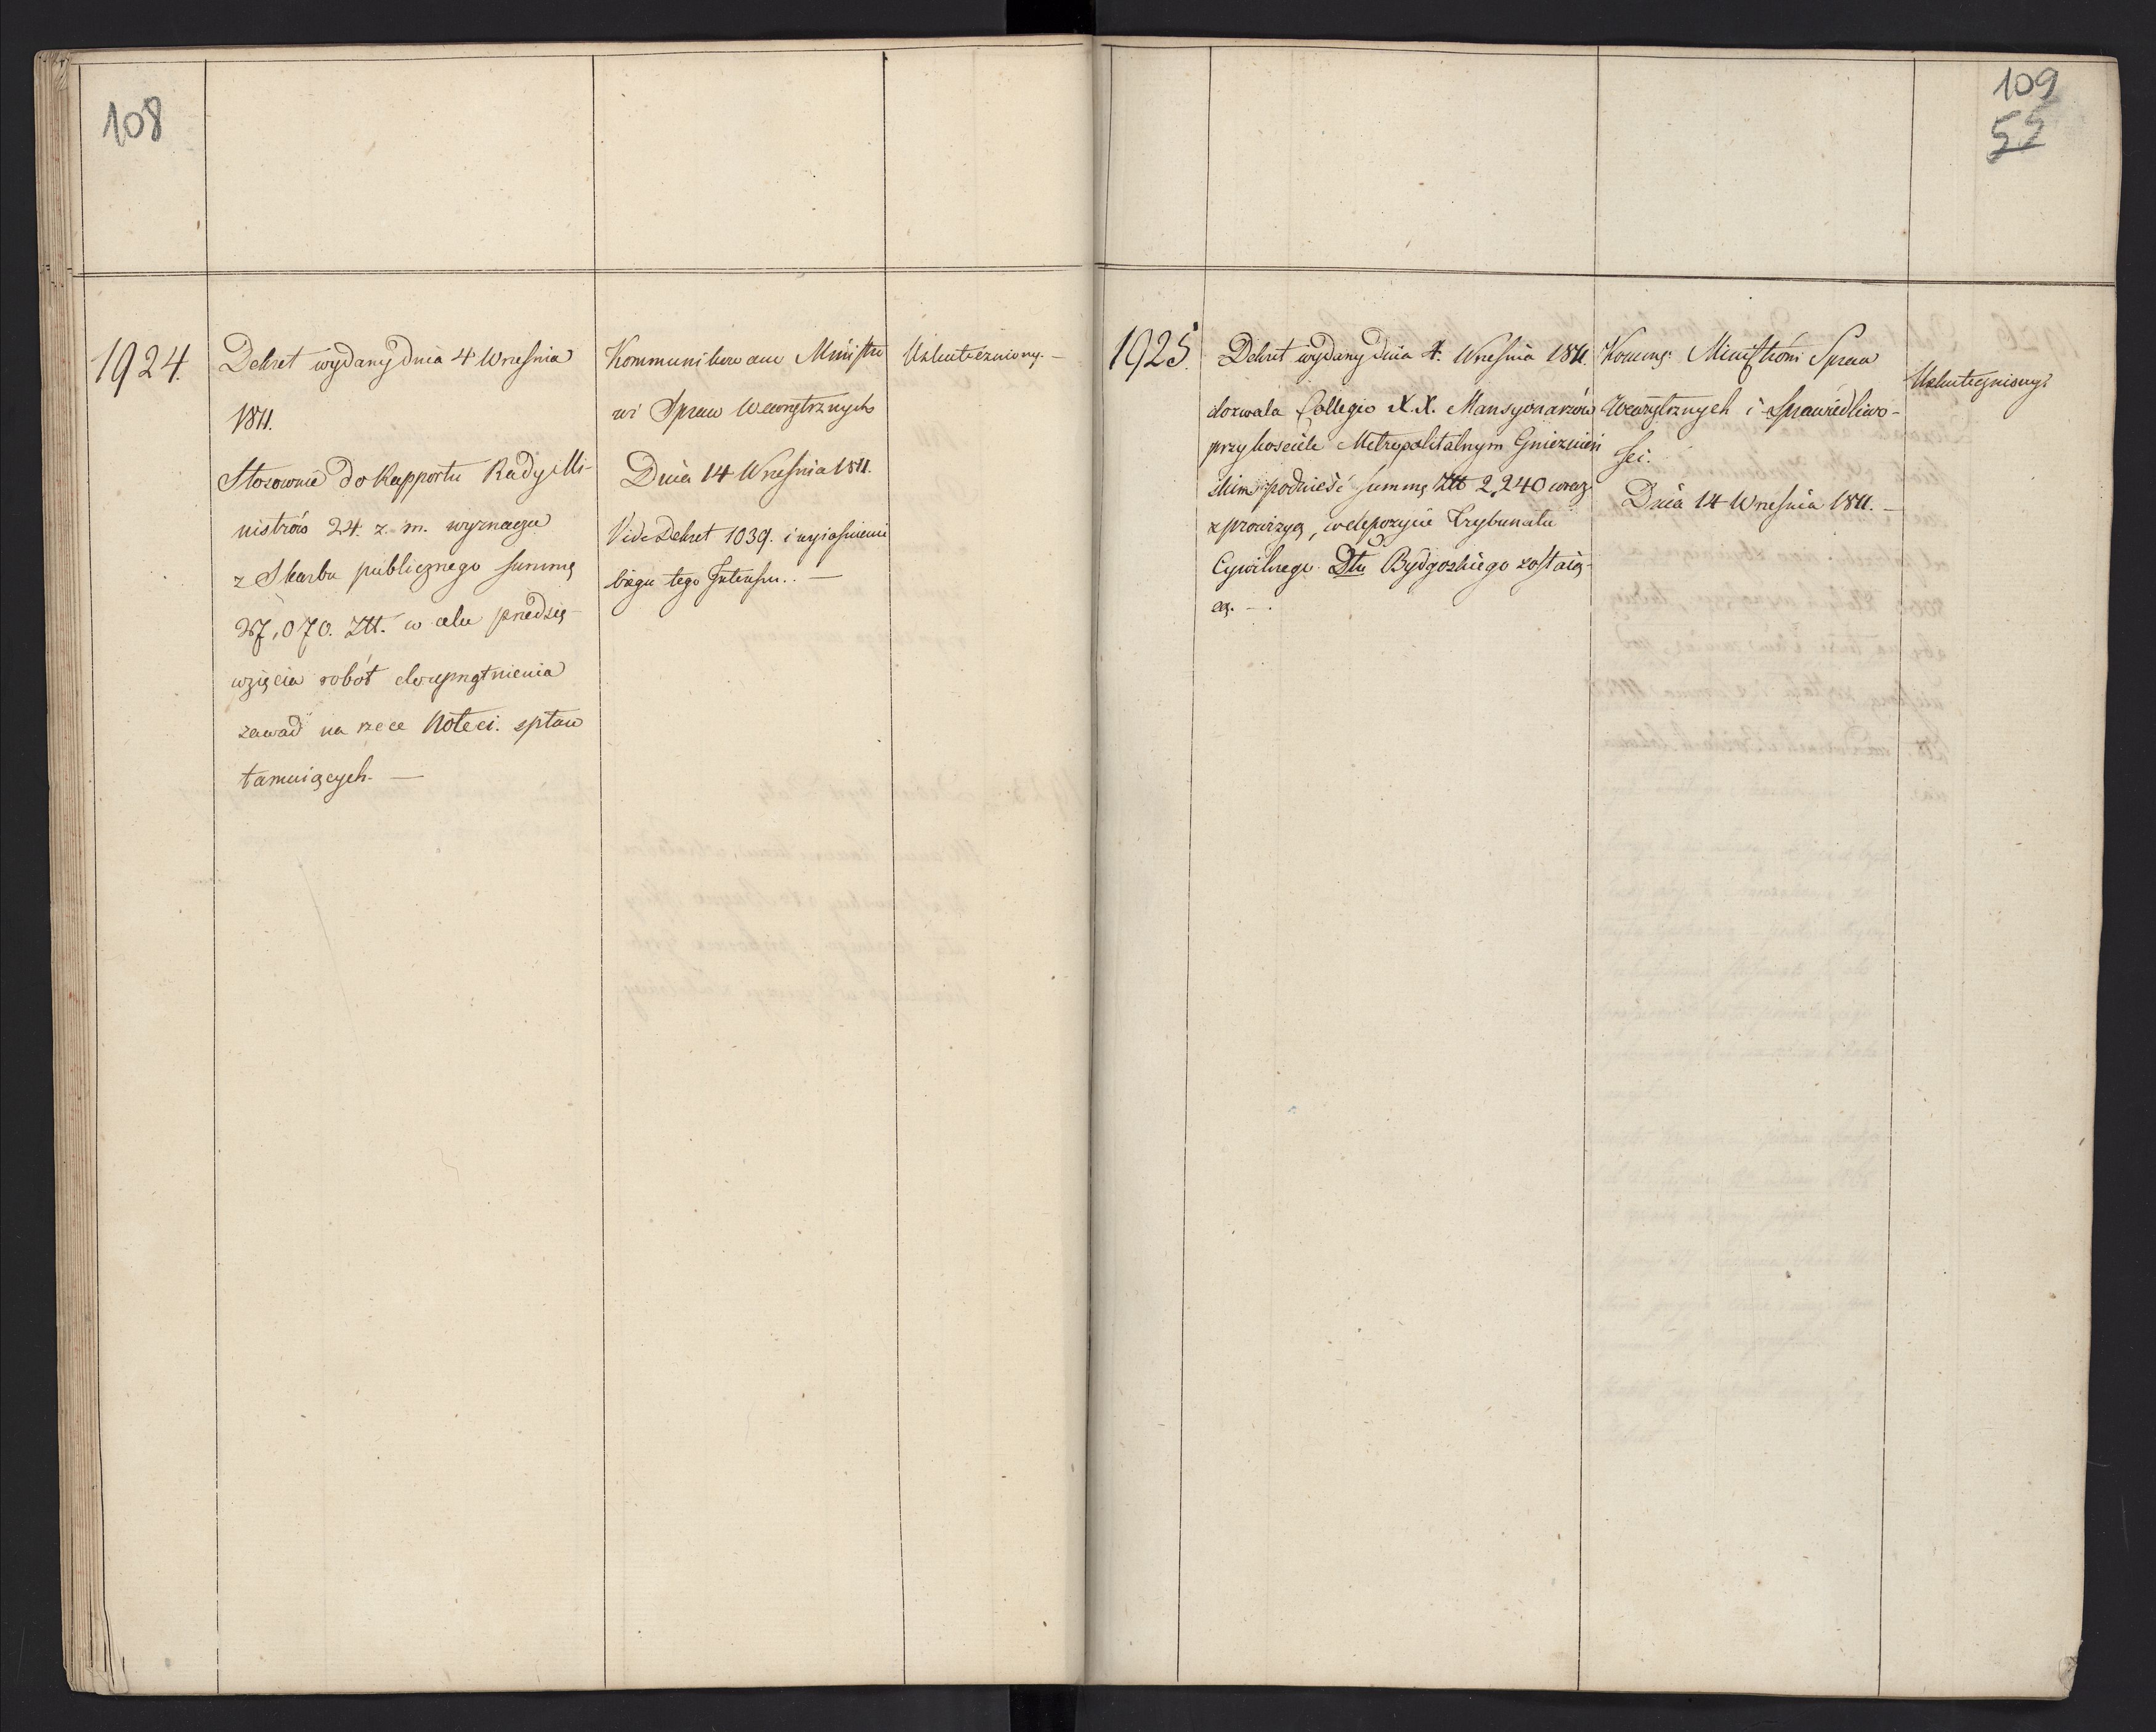 108
1924.
Dekret wydany dnia 4 Września
1811.
Stosownie do Rapportu Rady Mi-
nistrów 24. z. m. wyznacza
z Skarbu publicznego summę
070. Ztt. w celu przedsię-
wzięcia robót do uprzątnienia
zawad na rzece Noteci. spław
tamuiących. —
Kommunikowane Ministro
wi Spraw Wewnętrznych
Dnia 14 Września 1811.
Vide Dekret 1039. i wyiasnienie
biegu tego Interessu. . —
Uskuteczniony. —
109
1925.
Dekret wydany dnia 4. Września 1811.
dozwala Collegio X.X. Mansyonarzów
przy kosciele Metropolitalnym Gnieznień
skim podnieść summę Ztt 2,240 wraz
z prowizyą, w depozycie Trybunału
Cywilnego Dtu Bydgoskiego zostaią-
cą. — .
Kommę: Ministróm Spraw
Wewnętrznych i Sprawiedliwo-
sci.
Dnia 14 Września 1811. —
Uskuteczniony: